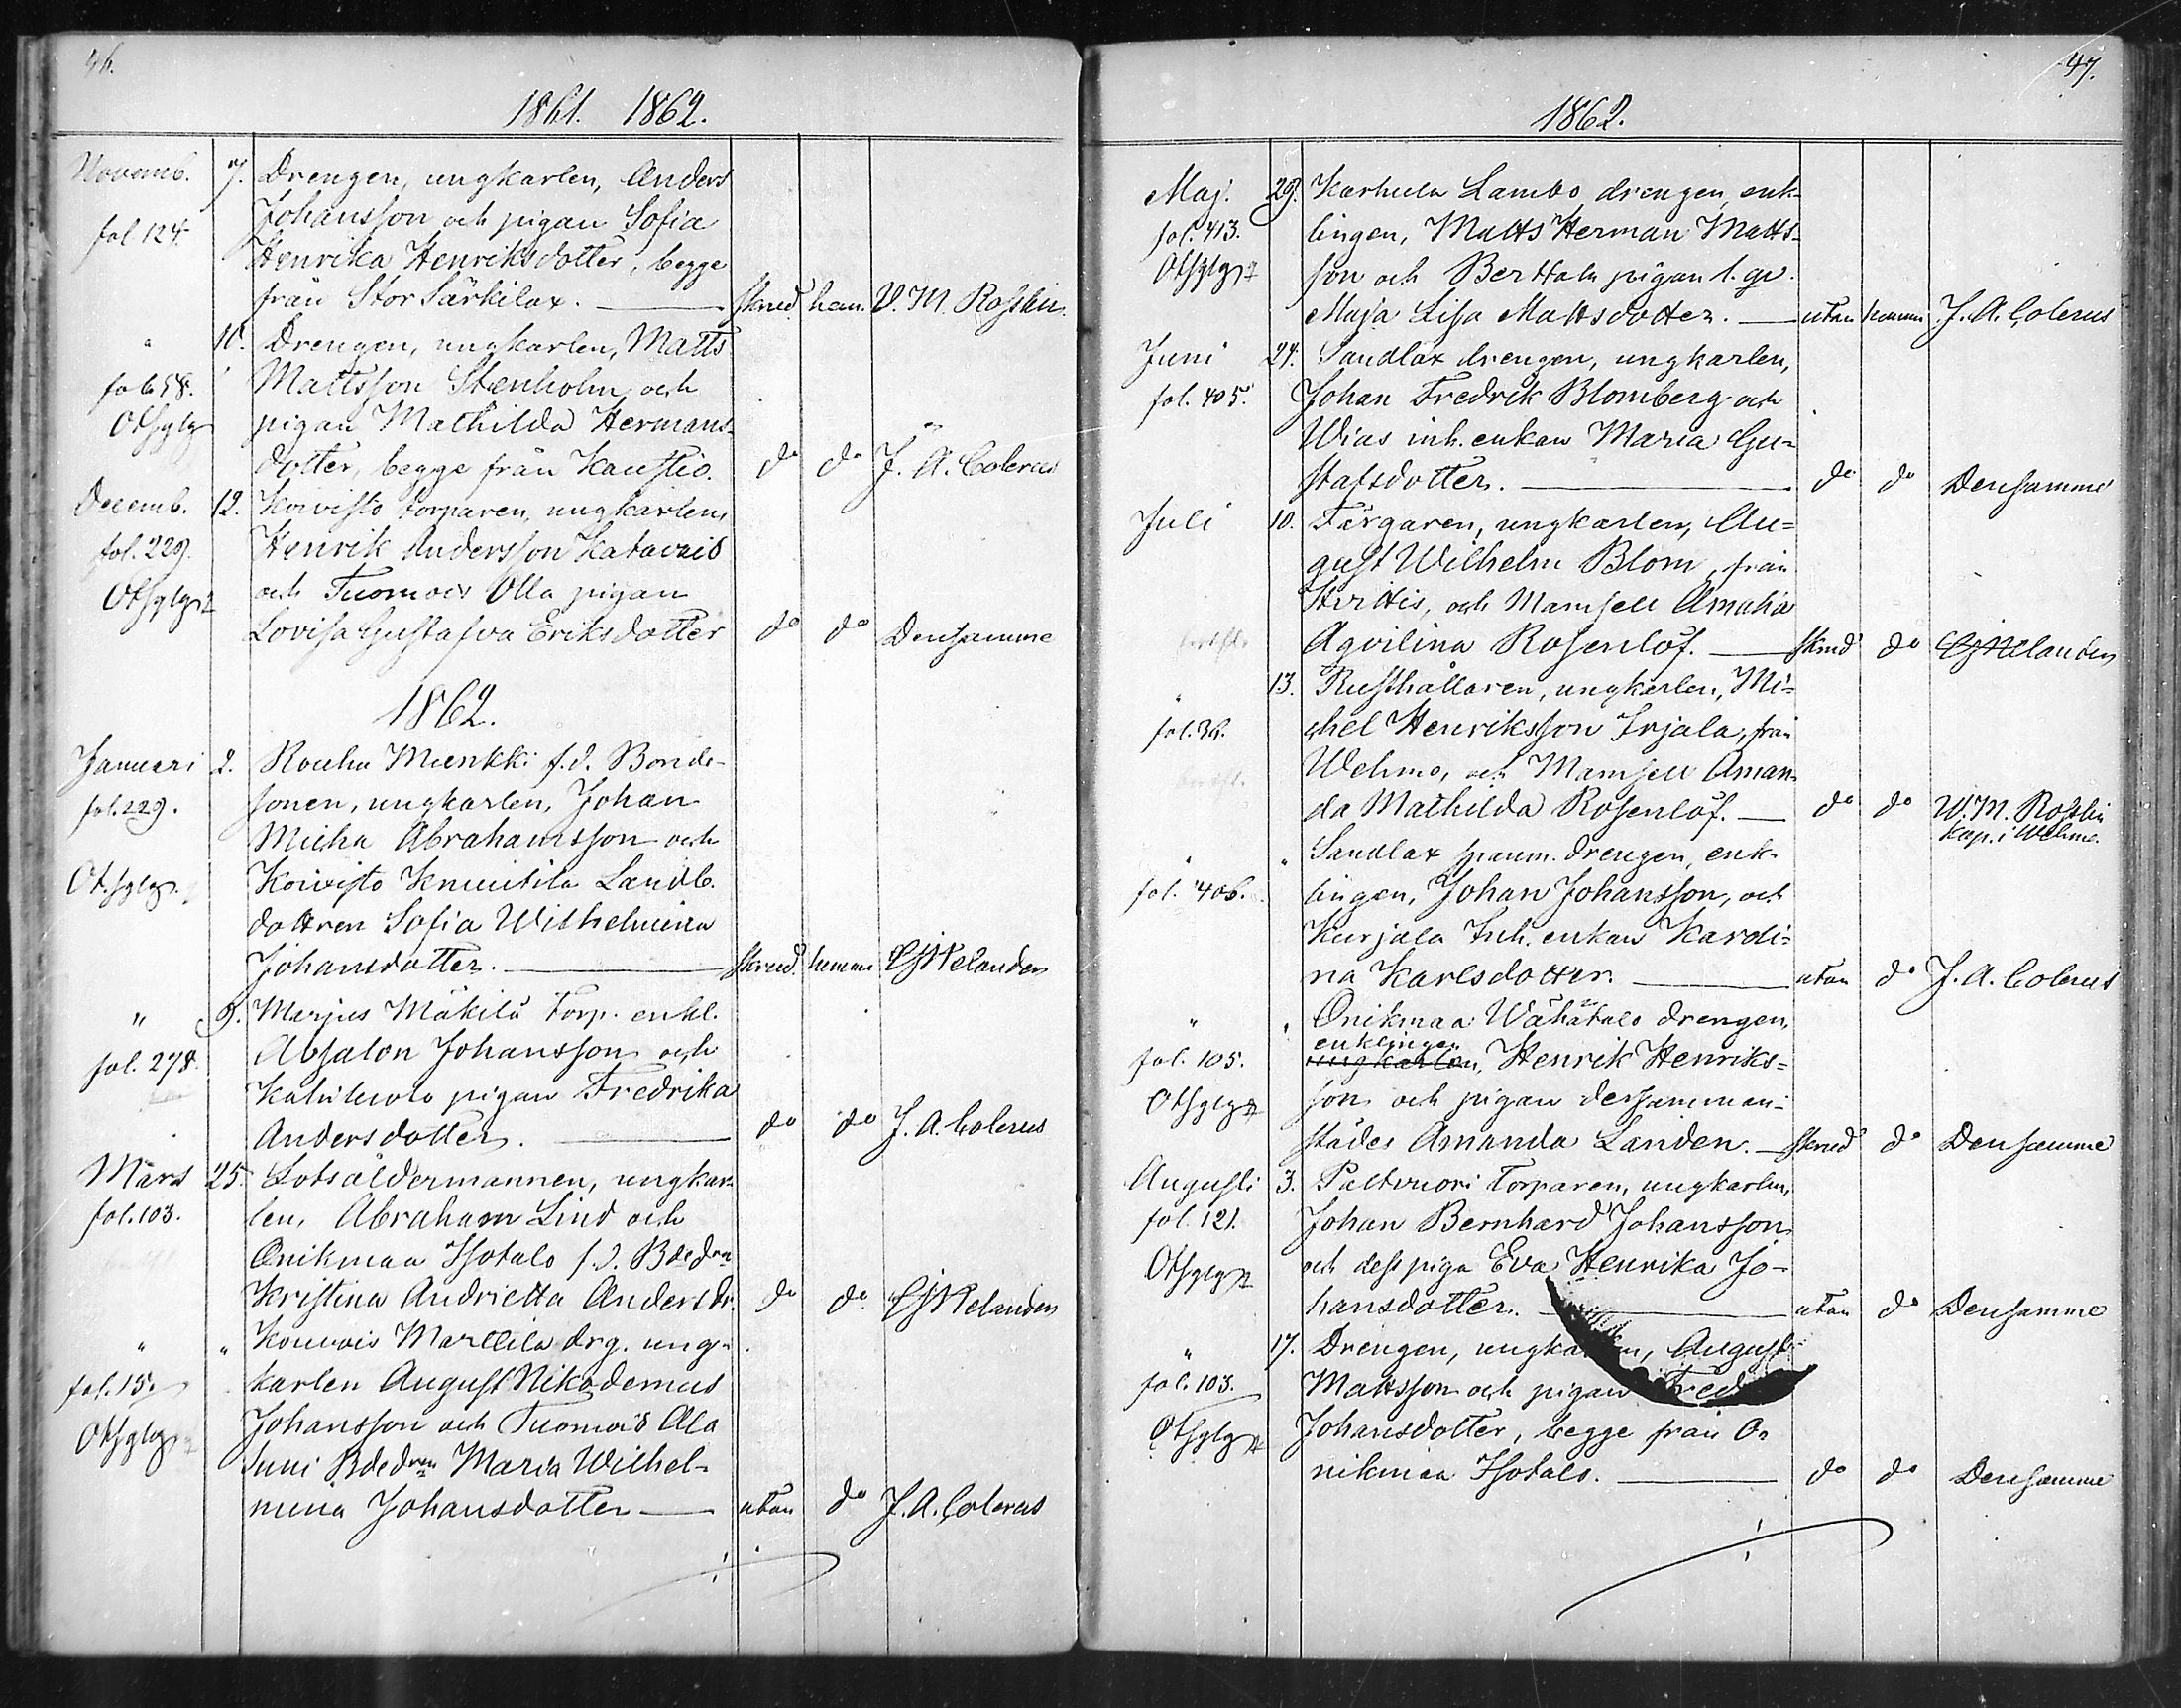 46.
1861. 1862.
Novemb. 7. Drengen, ungkarlen, Anders
fol 124. Johansson och pigan Sofia
Henrika Henriksdotter, begge
från Stor Särkilax. skrud hem. V. M. Rosslin.
" 10. Drengen, ungkarlen, Matts
Mattsson Stenholm och
pigan Mathilda Hermans-
dotter, begge från Kaustio. do do J. A. Colerus
Decemb. 12. Koivisto torparen, ungkarlen,
fol. 229. Henrik Andersson Katavais
och Tuomois Olla pigan
Lovisa Gustafva Eriksdotter do do Densamme
1862.
Januari 2. Rouhu Munkki f.d. Bonde-
fol. 229. sonen, ungkarlen, Johan
Micha Abrahamsson och
Koivisto Knuutila Landb.
dottren Sofia Wilhelmina
Johansdotter. skrud. hemma CJ Melanden
" 9. Marjus Mäkilä Torp. enkl.
fol. 278. Absalon Johansson och
pigan Fredrika
Andersdotter. do do J. A. Colerus
Mars 25. Lotsåldermannen, ungkar-
fol. 103. len, Abraham Lind och
Onikmaa Isotalo f.d. Bdedrn
Kristina Andrietta Andersdr. do do CJ Melanden
" " Kouvois Marttila drg. ung-
fol. 15. karlen August Nikodemus
Johansson och Tuomois Ala
Juni Bdedren Maria Wilhel-
mina Johansdotter utan do J. A. Colerus
47.
1862.
Maj. 29. Karhula Lambo drengen, enk-
fol. 413. lingen, Matts Herman Matts-
son och Berttala pigan l. qv.
Maja Lisa Mattsdotter. utan hemma J. A. Colerus
Juni 24. Sandlax drengen, ungkarlen,
fol. 405. Johan Fredrik Blomberg och
Wias inh. enkan Maria Gu-
stafsdotter. do do Densamme
Juli 10. Färgaren, ungkarlen, Au-
gust Wilhelm Blom, från
och Mamsell Amalia
Aqvilina Rosenlöf. skrud do CJ Melanden
" 13. Rusthållaren, ungkarlen, Mi-
fol. 36. chel Henriksson Irjala, från
Wehmo, och Mamsell Aman-
da Mathilda Rosenlöf. do do W. M. Rosslin
Kap. i Wehmo.
" " Sandlax spanm. drengen, enk-
fol. 406. lingen, Johan Johansson, och
Kurjala Inh. enkan Karoli-
na Karlsdotter. utan do J. A. Colerus
" " Onikmaa Wähätalo drengen,
enklingen
fol. 105. ungkarlen, Henrik Henriks-
son och pigan dersamman-
städes Amanda Landen. skrud do Densamme
Augusti 3. Paltvuori Torparen, ungkarlen,
fol. 121. Johan Bernhard Johansson
och dess piga Eva Henrika Jo-
hansdotter. utan do Densamme
" 17. Drengen, August
fol. 103. Mattsson och pigan
Johansdotter, begge från O-
nikmaa Isotalo. do do Densamme